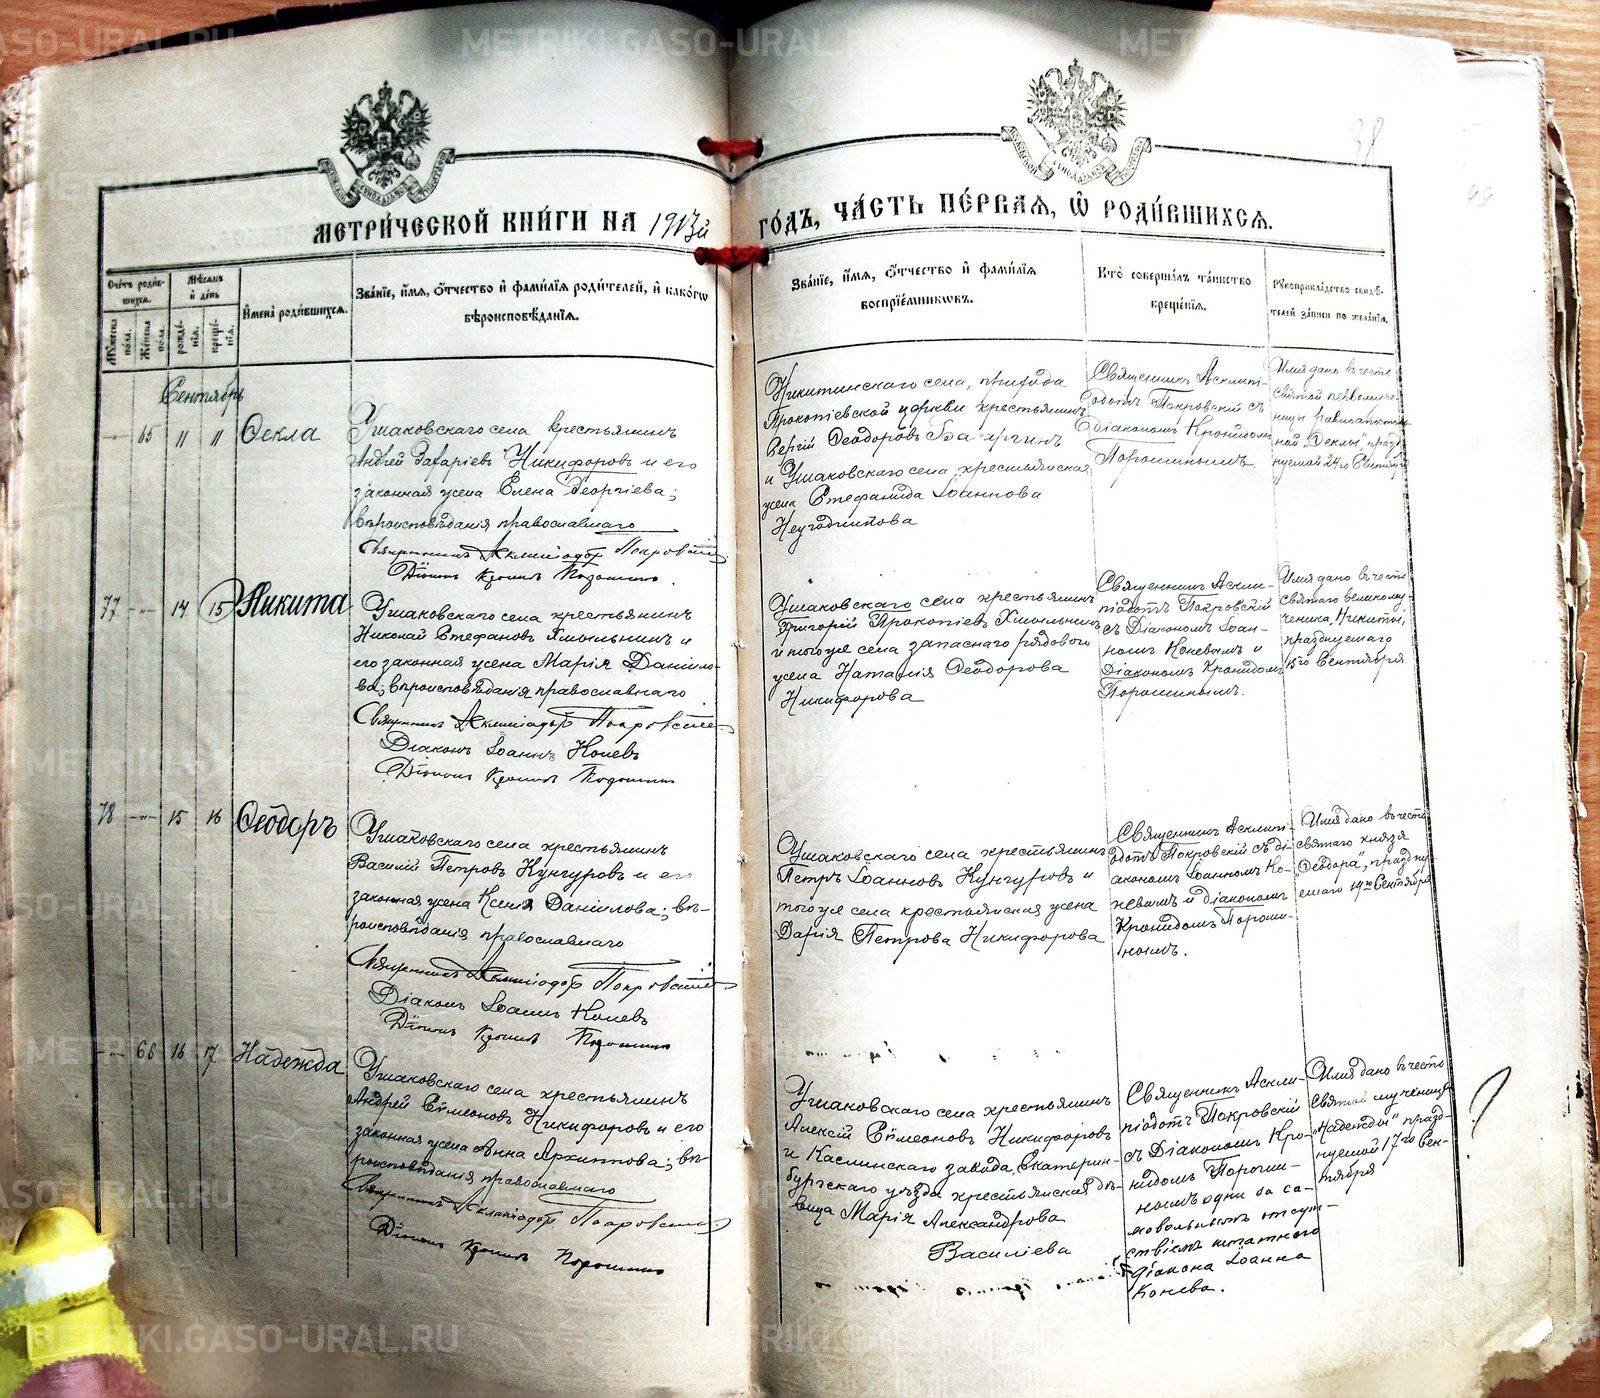 METRIKI.GASO-URAL.RU
38
МЕТРИЧЕСКОЙ КНИГИ НА 1913й ГОДЪ, ЧАСТЬ ПЕРВАЯ, Ѡ РОДИВШИХСЯ.
Счетъ родив-
шихся.
Мужеска пола.
Женска пола.
Мѣсяцъ
и день
рожде-
нія.
креще-
нія.
Имена родившихся.
Званіе, имя, отчество и фамилія родителей, и какого
вѣроисповѣданія.
Званіе, имя, отчество и фамилія
воспріемниковъ.
Кто совершалъ таинство
крещенія.
Рукоприкладство свидѣ-
телей записи по желанію.
Сентябрь
65 11 11 Ѳекла
Ушаковскаго села крестьянинъ
Андрей Захаріевъ Никифоровъ и его
законная жена Елена Георгіева;
вѣроисповѣданія православнаго
Священникъ Асклипіодотъ Покровскій
Діаконъ Кронидъ Порошинъ.
Никитинскаго села, прихода
Прокопіевской церкви крестьянинъ
Сергій Ѳеодоровъ
и Ушаковскаго села, крестьянская
жена Стефанида Іоаннова
Неугодникова
Священникъ Асклипі-
одотъ Покровскій съ
діакономъ Кронидомъ
Порошинымъ.
Имя дано въ честь
святой первомуче-
ницы равноапостоль-
ной „Ѳеклы" празд-
нуемой 24го Сентября
77 14 15 Никита
Ушаковскаго села крестьянинъ
Николай Стефановъ Хмыльнинъ и
его законная жена Марія Даніило-
ва; вѣроисповѣданія православнаго
Священникъ Асклипіодотъ Покровскій
Діаконъ Іоаннъ Коневъ
Діаконъ Кронидъ Порошинъ
Ушаковскаго села крестьянинъ
Григорій Прокопіевъ Хмыльнинъ
и тогоже села запаснаго рядового
жена Наталія Ѳеодорова
Никифорова
Священникъ Аскли-
піодотъ Покровскій
съ Діакономъ Іоан-
номъ Коневымъ и
Діакономъ Кронидомъ
Порошинымъ.
Имя дано въ честь
святаго великому-
ченика „Никиты",
празднуемаго
15го Сентября
78 15 16 Ѳеодоръ
Ушаковскаго села крестьянинъ
Василій Петровъ Кунгуровъ и его
законная жена Ксенія Даніилова; вѣ-
роисповѣданія православнаго
Священникъ Асклипіодотъ Покровскій
Діаконъ Іоаннъ Коневъ
Діаконъ Кронидъ Порошинъ
Ушаковскаго села крестьянинъ
Петръ Іоанновъ Кунгуровъ и
тогоже села крестьянская жена
Дарія Петрова Никифорова
Священникъ Асклипі-
одотъ Покровскій съ ді-
акономъ Іоанномъ Ко-
невымъ и діакономъ
Кронидомъ Пороши-
нымъ.
Имя дано въ честь
святаго князя
„Ѳеодора", праздну-
емаго 19го Сентября
66 16 17 Надежда
Ушаковскаго села крестьянинъ
Андрей Сѵмеоновъ Никифоровъ и его
законная жена Анна Архиппова; вѣ-
роисповѣданія православнаго
Священникъ Асклипіодотъ Покровскій
Діаконъ Кронидъ Порошинъ
Ушаковскаго села крестьянинъ
Алексій Сѵмеоновъ Никифоровъ
и Каслинскаго завода, Екатерин-
бургскаго уѣзда крестьянская дѣ-
вица Марія Александрова
Василіева
Священникъ Аскли-
піодотъ Покровскій
съ Діакономъ Кро-
нидомъ Пороши-
нымъ одни за са-
мовольнымъ отсут-
ствіемъ штатнаго
діакона Іоанна
Конева.
Имя дано въ честь
святой мученицы
„Надежды" празд-
нуемой 17го Сен-
тября
?